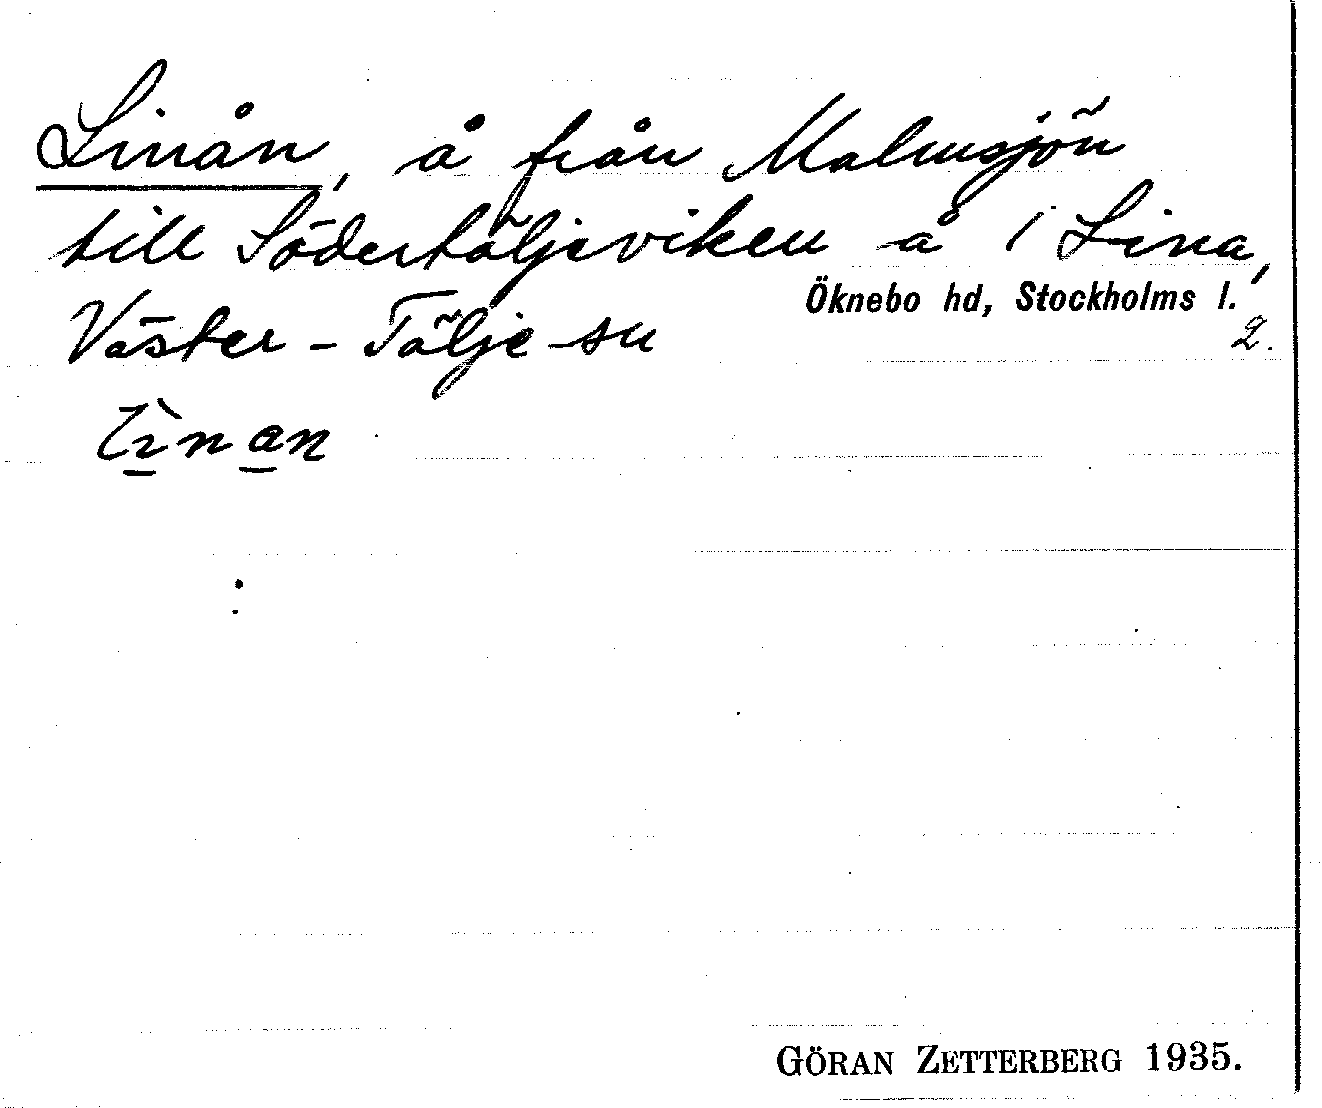 Linån, å från Malmsjön
till Södertäljeviken å 1 Lina,
Öknebo hd, Stockholms l.
Väster-Tälje sn 2.
Lìnan
GÖRAN ZETTERBERG 1935.